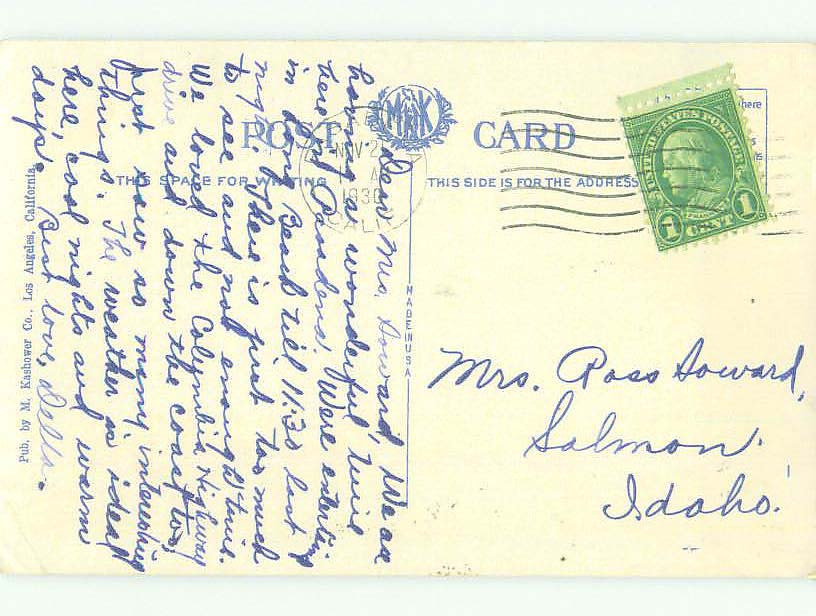 POST CARD
M K
THIS SPACE FOR WRITING
THIS SIDE IS FOR THE ADDRESS
Dear Mrs. Soward, We are
having a wonderful time
here in Pasadena. Were
in Long Beach till 11:30 last
night. There is just too much
to see and not enough time.
We loved the Columbia Highway
drive and down the coast too.
Just saw so many interesting
things. The weather is ideal
here, cool nights and warm
days. Best love, Della.
Mrs. Ross Soward,
Salmon.
Idaho.
NOV 2
1930
CALIF
UNITED STATES POSTAGE
FRANKLIN
1 CENT 1
here
MADE IN USA
Pub. by M. Kashower Co., Los Angeles, California.